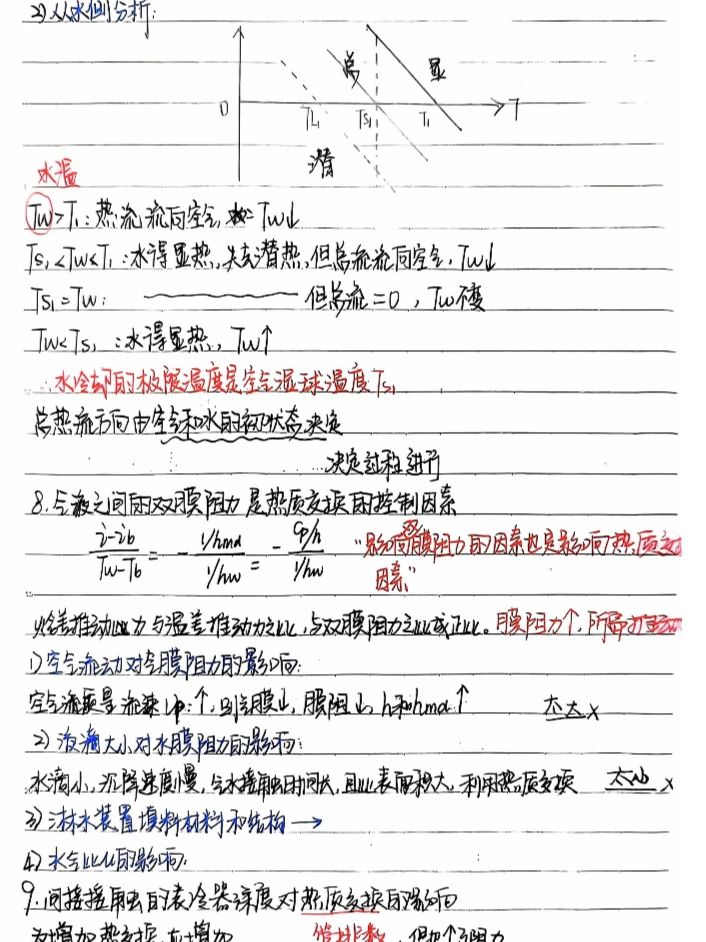 2) 从水侧分析:
总 显
0 TL₁ Ts₁ T₁ T
潜
水温
Tw>T₁:热流流向空气, Tw↓
Ts₁<Tw<T₁:水得显热,失去潜热,但总流流向空气,Tw↓
Ts₁=Tw: 但总流=0,Tw不变
Tw<Ts₁:水得显热,Tw↑
∴水冷却的极限温度是空气湿球温度Ts₁
总热流方向由空气和水的初状态决定
决定过程进行
8.气液之间的双膜阻力是热质交换的控制因素
(i-ib)/(Tw-Tb) = - (1/hmd)/(1/hw) = - (Cp/h)/(1/hw) “影响双膜阻力的因素也是影响热质交
因素”
焓差推动力与温差推动力之比,与双膜阻力之比成正比。膜阻力↑,所需推动
1)空气流动对气膜阻力的影响:
空气流 流速 ↑,则气膜↓,膜阻↓,h和hmd↑ 太大×
2)液滴大小对水膜阻力的影响:
水滴小,沉降速度慢,气水接触时间长,且比表面积大,利用热质交换 太小×
3)淋水装置填料材料和结构→
4)水气比 的影响:
9.间接接触的表冷器深度对热质交换的影响
为增加热交换,应增加 管排数,但 阻力